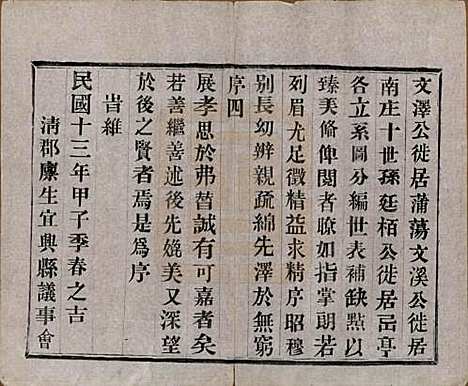 文澤公徙居蒲蕩文溪公徙居
南庄十世孫廷栢公徙居亭
各立系圖分編世表補缺點以
臻美俻俾閱者瞭如指掌朗若
列眉尤足徵精益求精序昭穆
别長幼辨親疏綿先澤於無窮
序四
展孝思於弗替誠有可嘉者矣
若善繼善述後先媲美又深望
於後之賢者焉是爲序
旹維
民國十三年甲子季春之吉
清郡廪生宜興縣議事會